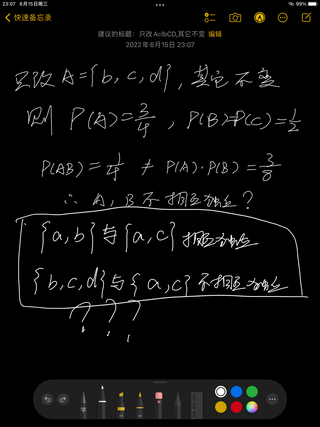 23:07 6月15日周三
99%
快速备忘录
建议的标题: 只改A=lbCD,其它不变 编辑
2022年6月15日 23:07
只改 A={b, c, d}, 其它不变
则 P(A)=3/4, P(B)=P(C)=1/2
P(AB)=1/4 ≠ P(A)·P(B)=3/8
∴ A, B 不相互独立?
{a,b}与{a,c} 相互独立
{b,c,d}与{a,c} 不相互独立
? ? ?